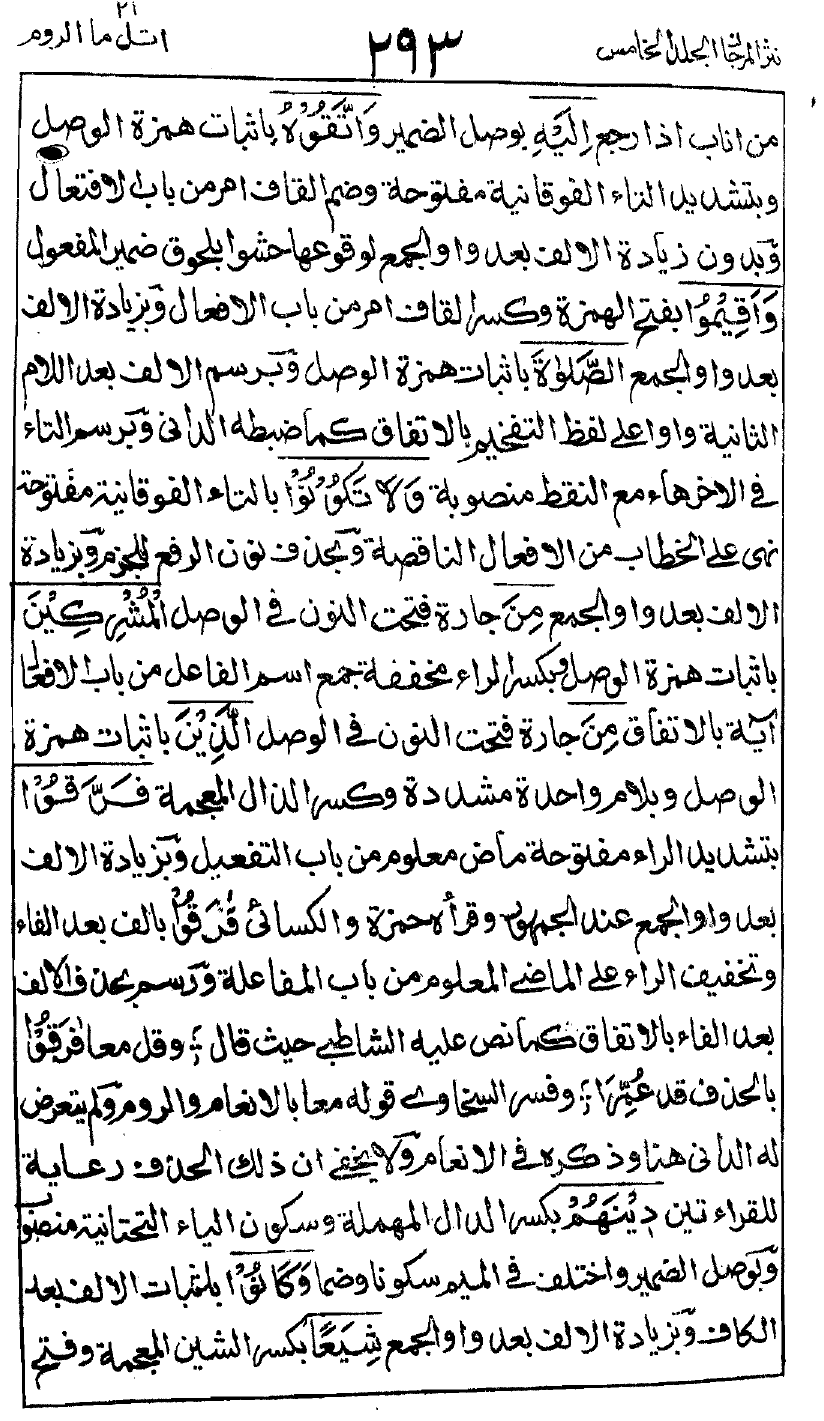 نثر المرجان الجلد الخامس
٢٩٣
٢١
اتل ما الروم
من اناب اذا رجع اِلَيْهِ بوصل الضمير وَاتَّقُوْهُ باثبات همزة الوصل
وبتشديد التاء الفوقانية مفتوحة وضم القاف امر من باب الافتعال
وبدون زيادة الالف بعد واو الجمع لوقوعها حشوا بلحوق ضمير المفعول
وَاَقِيْمُوا بفتح الهمزة وكسر القاف امر من باب الافعال وبزيادة الالف
بعد واو الجمع الصَّلٰوةَ باثبات همزة الوصل وبرسم الالف بعد اللام
الثانية واوا على لفظ التفخيم بالاتفاق كما ضبطه الدانى وبرسم التاء
فى الاخر هاء مع النقط منصوبة وَلَا تَكُوْنُوْا بالتاء الفوقانية مفتوحة
نهى على الخطاب من الافعال الناقصة وبحذف نون الرفع للجزم وبزيادة
الالف بعد واو الجمع مِنَ جارة فتحت النون فى الوصل الْمُشْرِكِيْنَ
باثبات همزة الوصل وبكسر الراء مخففة جمع اسم الفاعل من باب الافعال
آية بالاتفاق مِنَ جارة فتحت النون فى الوصل الَّذِيْنَ باثبات همزة
الوصل وبلام واحدة مشددة وكسر الذال المعجمة فَرَّقُوْا
بتشديد الراء مفتوحة ماض معلوم من باب التفعيل وبزيادة الالف
بعد واو الجمع عند الجمهور وقرأه حمزة والكسائى فٰرَقُوْا بالف بعد الفاء
وتخفيف الراء على الماضى المعلوم من باب المفاعلة ورسم بحذف الالف
بعد الفاء بالاتفاق كما نص عليه الشاطبى حيث قال وقل معا فرقوا
بالحذف قد عُمِّرَا وفسر السخاوى قوله معا بالانعام والروم ولم يتعرض
له الدانى هنا وذكره فى الانعام ولا يخفى ان ذلك الحذف رعاية
للقراءتين دِيْنَهُمْ بكسر الدال المهملة وسكون الياء التحتانية منصوب
وبوصل الضمير واختلف فى الميم سكونا وضما وَكَانُوْا باثبات الالف بعد
الكاف وبزيادة الالف بعد واو الجمع شِيَعًا بكسر الشين المعجمة وفتح